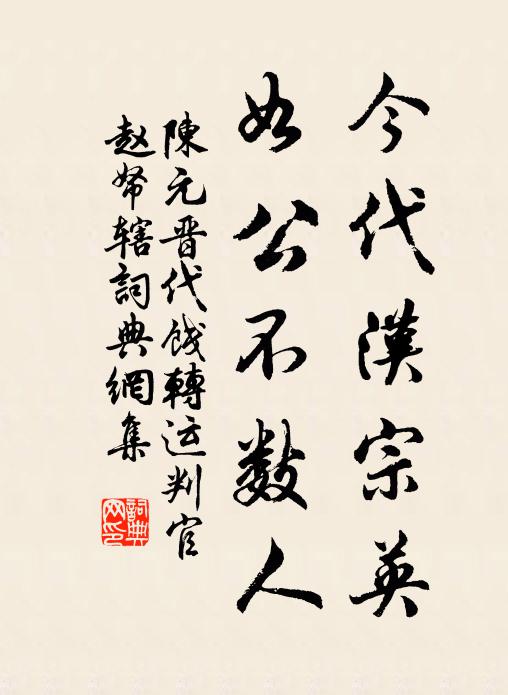 今代漢宗英
如公不數人
陳元晋代餞轉运判官
赵帑辖詞典網集
詞典网印